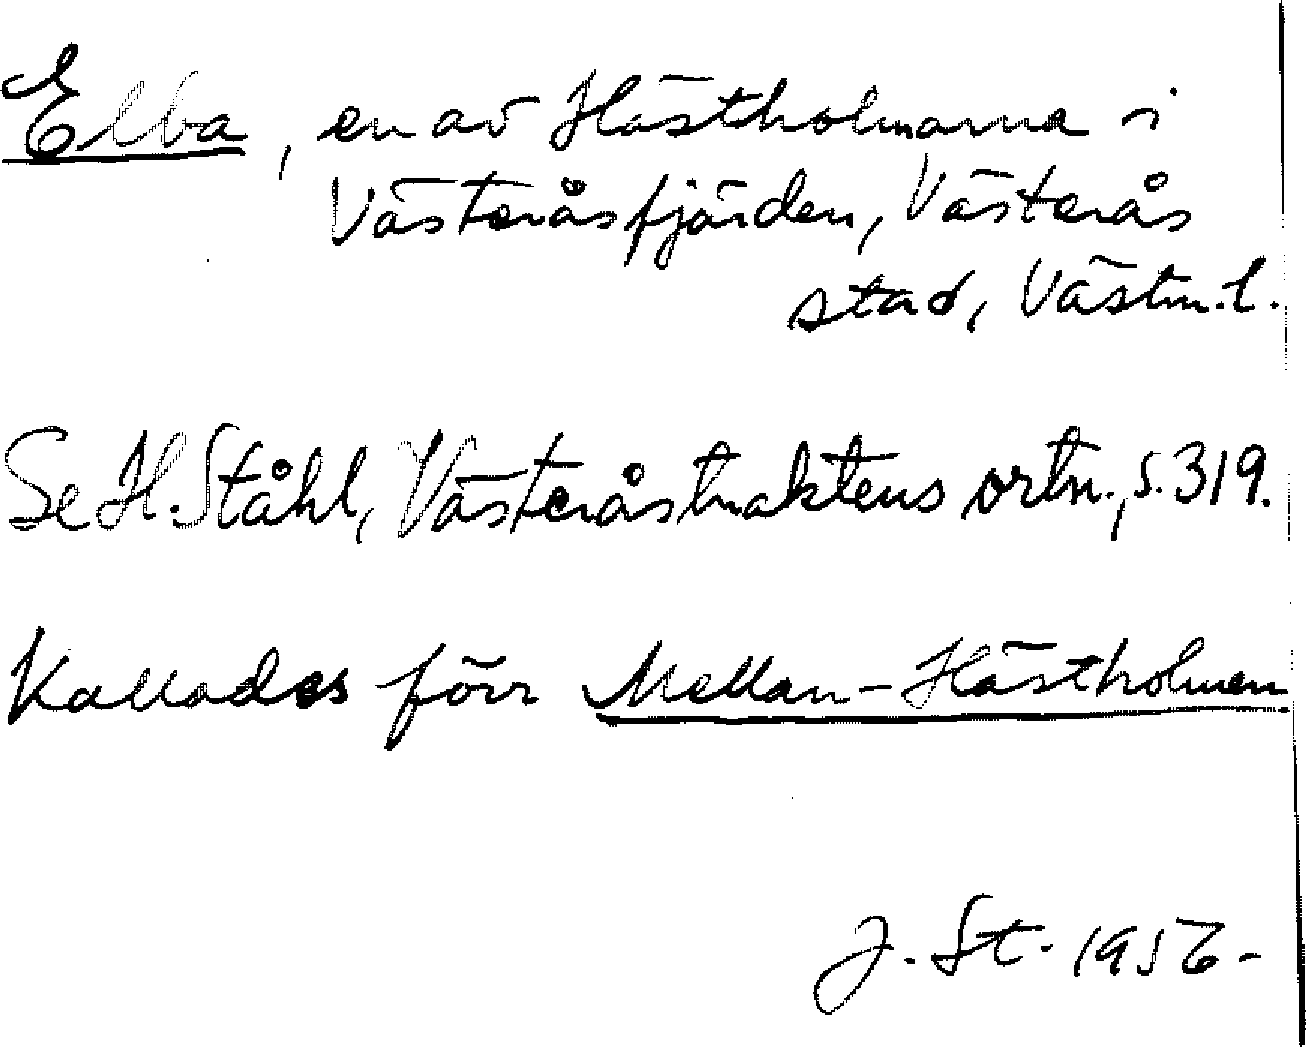 Elba, en av Hästholmarna i
Västeråsfjärden, Västerås
stad, Västm. l.
Se H. Ståhl, Västeråstraktens ortn., s. 319.
Kallades förr Mellan-Hästholmen
J. St. 1956-